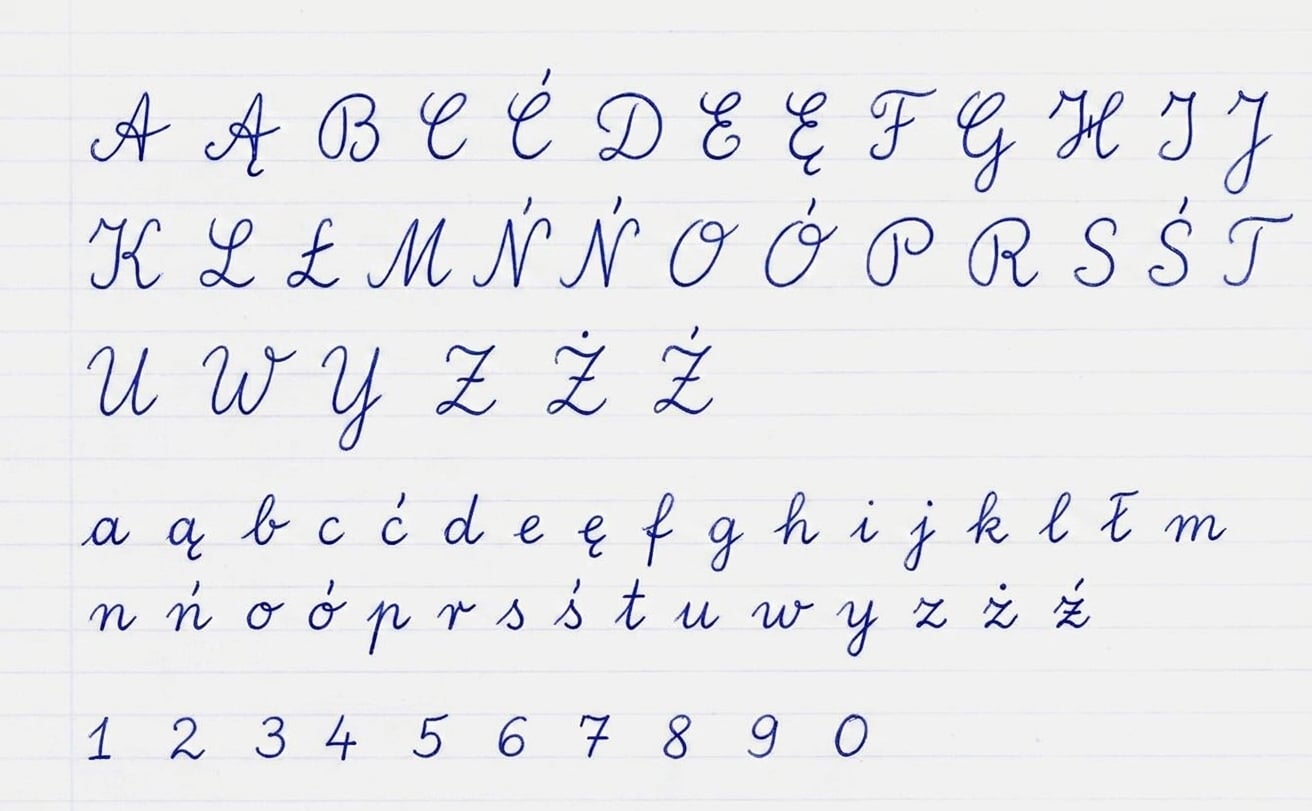 A Ą B C Ć D E Ę F G H I J
K L Ł M Ń Ń O Ó P R S Ś T
U W Y Z Ż Ź
a ą b c ć d e ę f g h i j k l ł m
n ń o ó p r s ś t u w y z ż ź
1 2 3 4 5 6 7 8 9 0